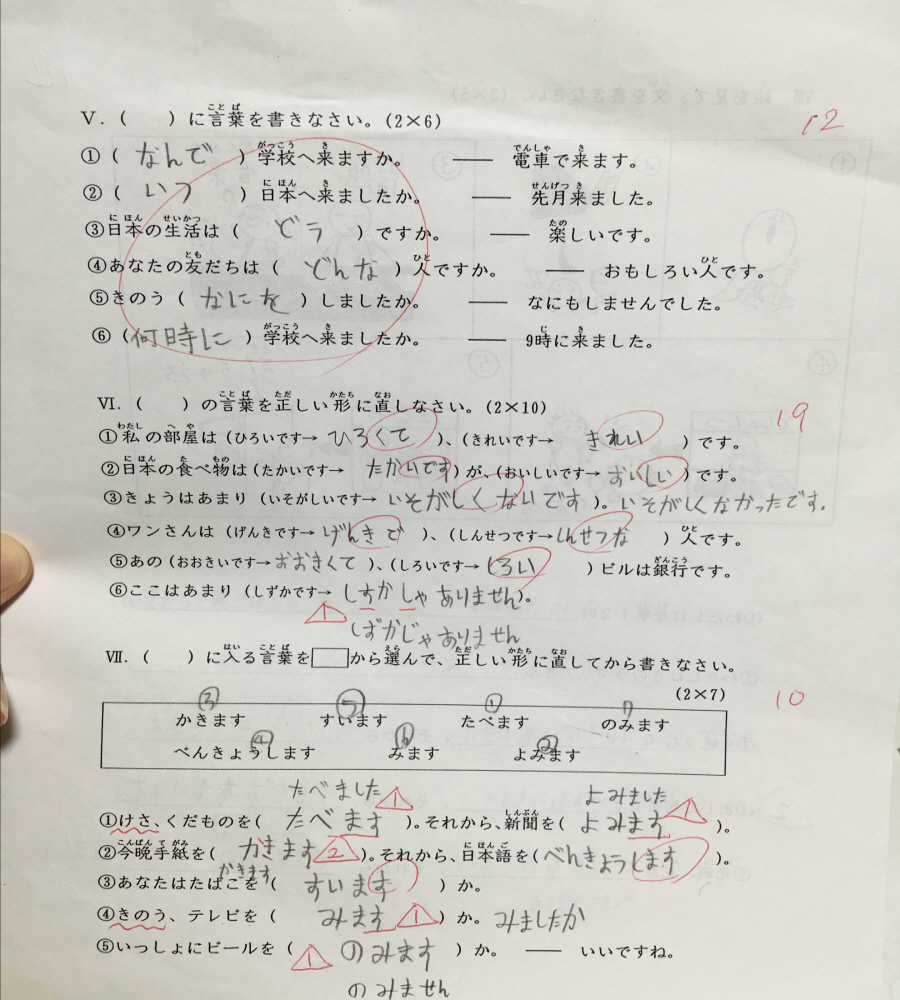 Ⅴ.( )に言葉を書きなさい。(2×6) 12
①( なんで )学校へ来ますか。 —— 電車で来ます。
②( いつ )日本へ来ましたか。 —— 先月来ました。
③日本の生活は( どう )ですか。 —— 楽しいです。
④あなたの友だちは( どんな )人ですか。 —— おもしろい人です。
⑤きのう( なにを )しましたか。 —— なにもしませんでした。
⑥(何時に )学校へ来ましたか。 —— 9時に来ました。
Ⅵ.( )の言葉を正しい形に直しなさい。(2×10) 19
①私の部屋は(ひろいです→ ひろくて )、(きれいです→ きれい )です。
②日本の食べ物は(たかいです→ たかいです)が、(おいしいです→ おいしい )です。
③きょうはあまり(いそがしいです→ いそがしくないです )。いそがしくなかったです.
④ワンさんは(げんきです→ げんきで )、(しんせつです→ しんせつな )人です。
⑤あの(おおきいです→ おおきくて )、(しろいです→ しろい )ビルは銀行です。
⑥ここはあまり(しずかです→ しすかしゃありません)。
1 しずかじゃありません
Ⅶ.( )に入る言葉を□から選んで、正しい形に直してから書きなさい。
(2×7) 10
③ ⑤ ① 7
かきます すいます たべます のみます
④ ⑥ ②
べんきょうします みます よみます
たべました 1 よみました 1
①けさ、くだものを( たべます )。それから、新聞を( よみます )。
②今晩手紙を( かきます 2 )。それから、日本語を(べんきょうします )。
かきます
③あなたはたばこを( すいます )か。
④きのう、テレビを( みます 1 )か。みましたか
⑤いっしょにビールを( 1 のみます )か。 —— いいですね。
のみません